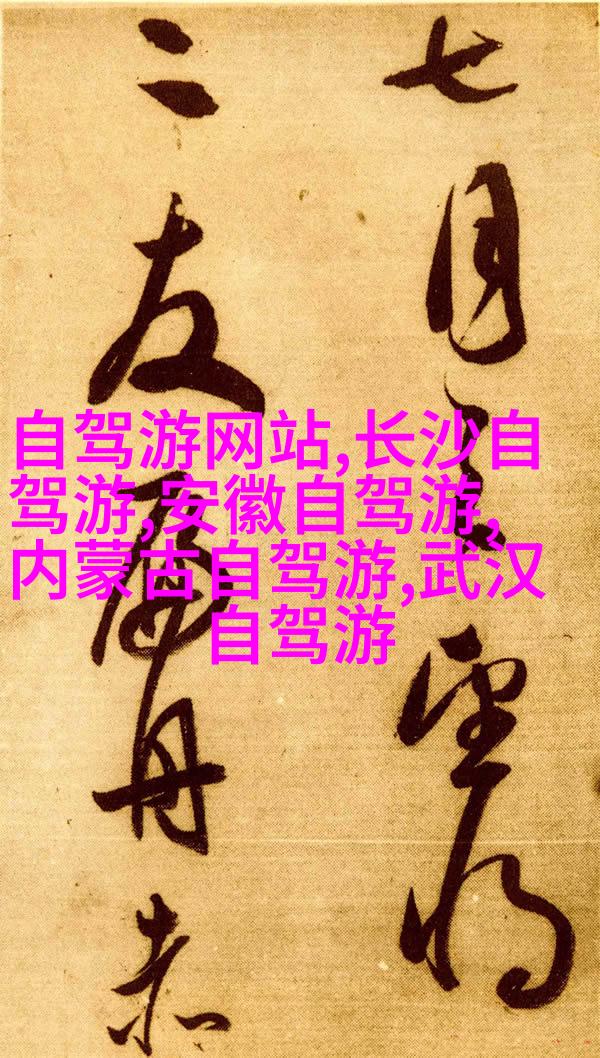 七月望
二友舟赤
自驾游网站,长沙自
驾游,安徽自驾游,
内蒙古自驾游,武汉
自驾游